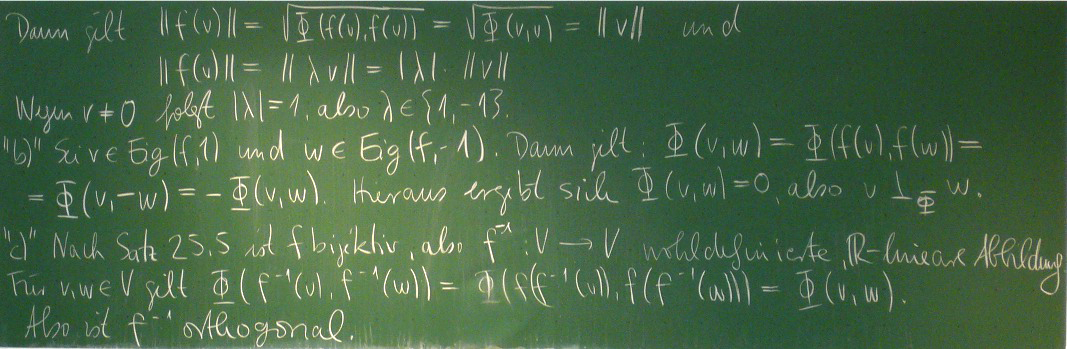 Dann gilt ‖f(v)‖ = √Φ(f(v),f(v)) = √Φ(v,v) = ‖v‖ und
‖f(v)‖ = ‖λv‖ = |λ|·‖v‖
Wegen v ≠ 0 folgt |λ| = 1, also λ ∈ {1,-1}.
"b)" Sei v ∈ Eig(f,1) und w ∈ Eig(f,-1). Dann gilt: Φ(v,w) = Φ(f(v),f(w)) =
= Φ(v,-w) = -Φ(v,w). Hieraus ergibt sich Φ(v,w) = 0, also v ⊥_Φ w.
"c)" Nach Satz 25.5 ist f bijektiv, also f⁻¹: V → V wohldefinierte, ℝ-lineare Abbildung.
Für v,w ∈ V gilt Φ(f⁻¹(v), f⁻¹(w)) = Φ(f(f⁻¹(v)), f(f⁻¹(w))) = Φ(v,w).
Also ist f⁻¹ orthogonal.